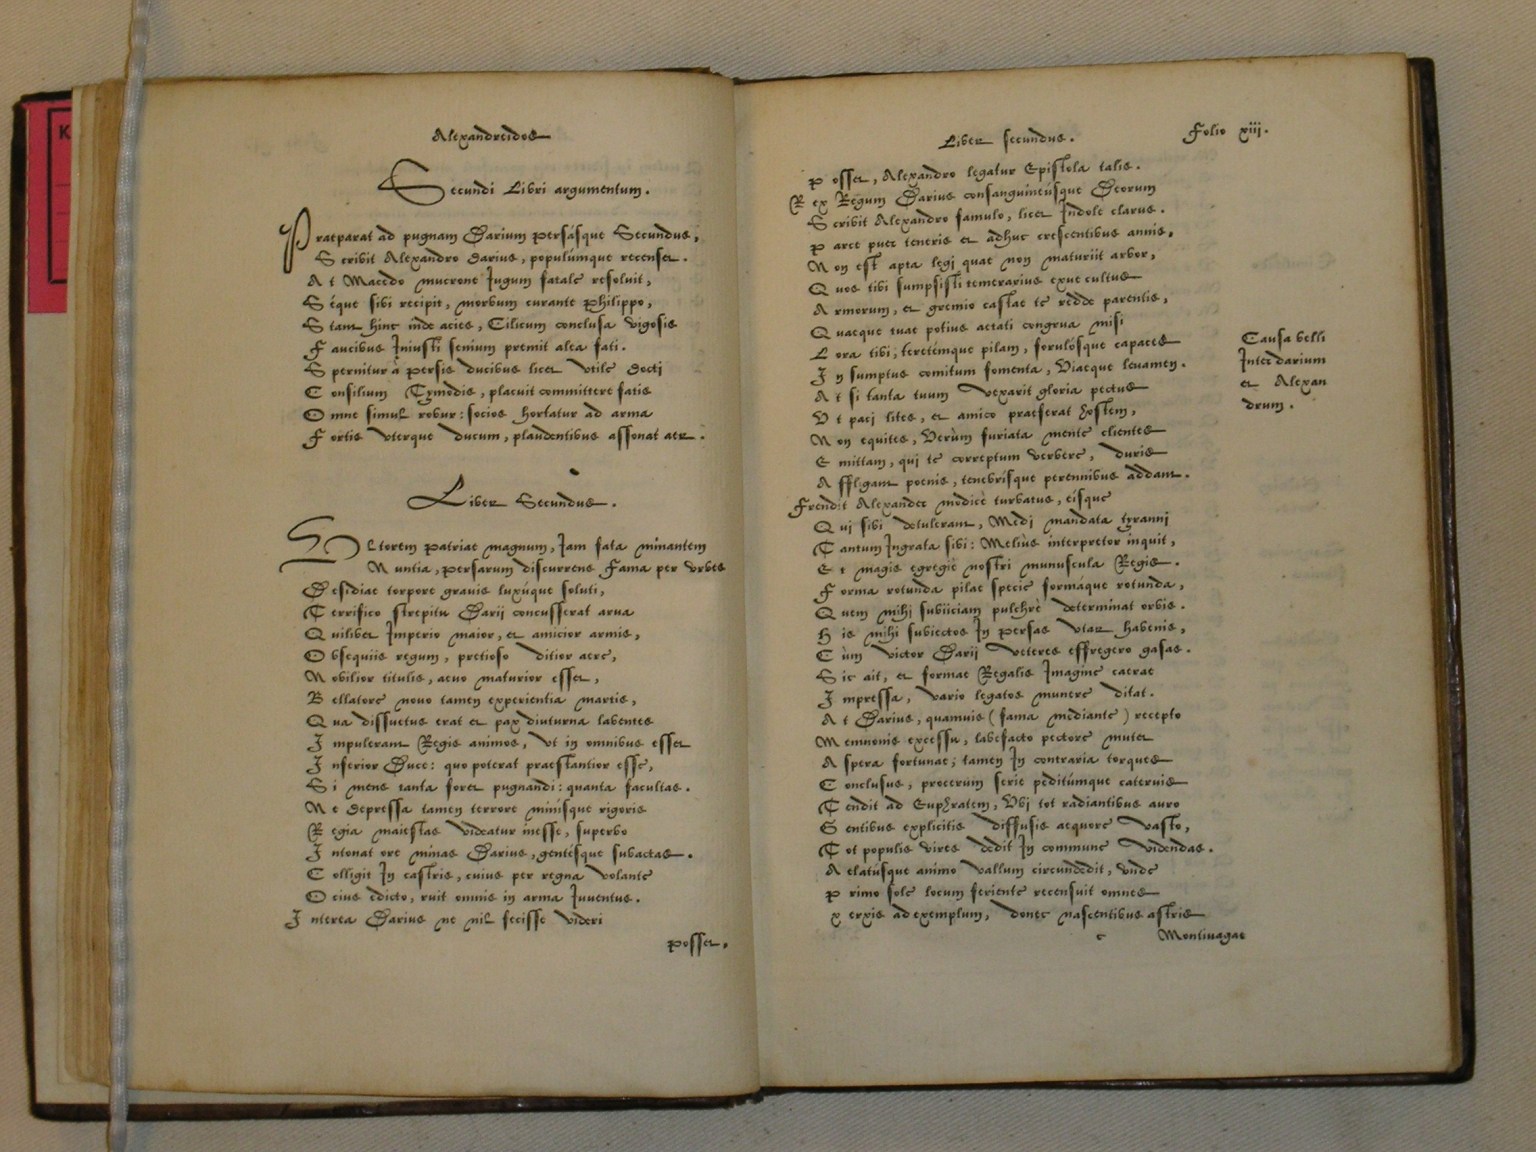 K
Alexandreidos
Secundi Libri argumentum.
Praeparat ad pugnam Darium Persásque Secundus,
Scribit Alexandro Darius, populúmque recenset.
At Macedo mucrone Jugum fatale resoluit,
Séque sibi recipit, morbum curante Philippo,
Stant hinc inde acies, Cilicum conclusa vigosis
Faucibus Iniusti senium premit alea fati.
Spernitur à Persis ducibus licet vtile docti
Consilium Tymodis, placuit committere fatis
Omne simul robur: socios hortatur ad arma
Fortis vterque ducum, plaudentibus assonat aer.
Liber Secundus.
Vltorem Patriae magnum, Jam fata minantem
Nuntia, Persarum discurrens Fama per vrbes
Desidiae torpore grauis luxúque soluti,
Terrifico strepitu Darij concusserat arua
Quilibet Imperio maior, et amicior armis,
Obsequiis regum, pretioso ditior aere,
Nobilior titulis, aeuo maturior esset,
Bellatore nouo tamen experientia martis,
Qua dissuetus erat et pax diuturna labentes
Impulerant Regis animos, vt in omnibus esset
Inferior Duce: quo poterat praestantior esse,
Si mens tanta foret pugnandi: quanta facultas.
Ne depressa tamen terrore minísque rigoris
Regia maiestas videatur inesse, superbo
Intonat ore minas Darius, gentésque subactas.
Colligit In castris, cuius per regna volante
Ocius edicto, ruit omnis in arma Juuentus.
Interea Darius ne nil fecisse videri
Posset,
Liber secundus.
Folio xiii.
Posset, Alexandro legatur Epistola talis.
Rex Regum Darius consanguineúsque Deorum
Scribit Alexandro famulo, licet Indole clarus.
Parce puer teneris et adhuc crescentibus annis,
Non est apta legj quae non maturiit arbor,
Quos tibi sumpsisti temerarius exue cultus
Armorum, et gremio castae te redde parentis,
Quaeque tuae potius aetati congrua misi
Lora tibi, teretémque pilam, forulósque capaces
In sumptus comitum fomenta, Viaeque leuamen.
At si tanta tuum vexarit gloria pectus
Vt pacj lites, et amico praeferat hostem,
Non equites, Verùm furiata mente clientes
Emittam, qui te correptum verbere, duris
Affligant poenis, tenebrísque perennibus addant.
Frendit Alexander modicè turbatus, eísque
Quj sibi detulerant, Medj mandata tyranni
Tantum Ingrata sibi: Meliùs interpretor inquit,
Et magis egregiè nostri munuscula Regis.
Forma rotunda pilae specie formáque rotunda,
Quem mihj subiiciam pulchrè determinat orbis.
His mihj subiectos In Persas vtar habenis,
Cùm victor Darij veteres effregero gasas.
Sic ait, et formae Regalis Imagine caerae
Impressa, vario legatos munere ditat.
At Darius, quamuis (fama mediante) recepto
Memnonis excessu, labefacto pectore mutet
Aspera fortunae; tamen In contraria torques
Conclusus, procerùm serie peditúmque cateruis
Tendit ad Euphratem, Vbj tot radiantibus auro
Gentibus explicitis diffusis aequore vasto,
Tot populis vires dedit In commune videndas.
Aelatúsque animo vallum circundedit, vnde
Primo sole locum feriente recensuit omnes
Xerxis ad exemplum, donec nascentibus astris
c
Montiuagae
Causa belli
Inter darium
et Alexan
drum.